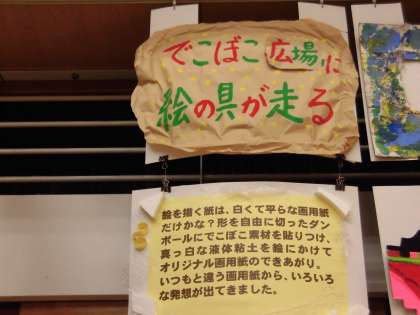 でこぼこ広場に
絵の具が走る
絵を描く紙は、白くて平らな画用紙
だけかな？形を自由に切ったダン
ボールにでこぼこ素材を貼りつけ、
真っ白な液体粘土を絵にかけて
オリジナル画用紙のできあがり。
いつもと違う画用紙から、いろいろ
な発想が出てきました。